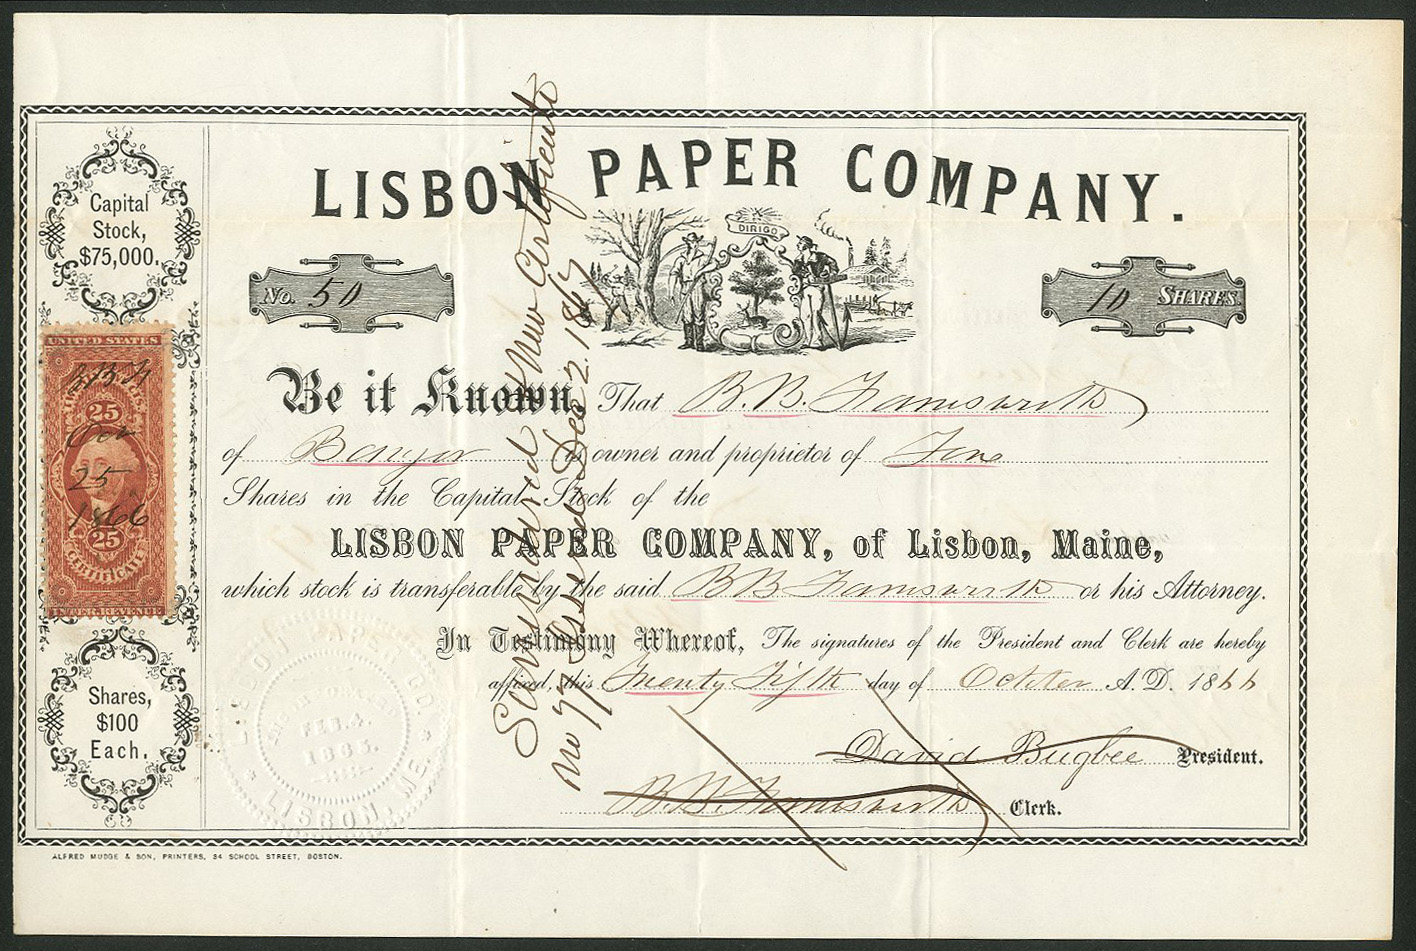 LISBON PAPER COMPANY.
DIRIGO
Capital
Stock,
$75,000.
No. 50
10 SHARES.
Be it Known That B. B. Farnsworth
of Bangor is owner and proprietor of Ten
Shares in the Capital Stock of the
LISBON PAPER COMPANY, of Lisbon, Maine,
which stock is transferable by the said B B Farnsworth or his Attorney.
In Testimony Whereof, The signatures of the President and Clerk are hereby
affixed, this Twenty Fifth day of October A. D. 1866
David Bugbee President.
B. B. Farnsworth Clerk.
Surrendered & New Certificate
No 77 Issued Dec 2. 1867
UNITED STATES
B B F
25
Oct
25
1866
25
CERTIFICATE
INTER. REVENUE
Shares,
$100
Each.
LISBON PAPER CO.
INCORPORATED
FEB. 4.
1865.
LISBON, ME.
ALFRED MUDGE & SON, PRINTERS, 34 SCHOOL STREET, BOSTON.